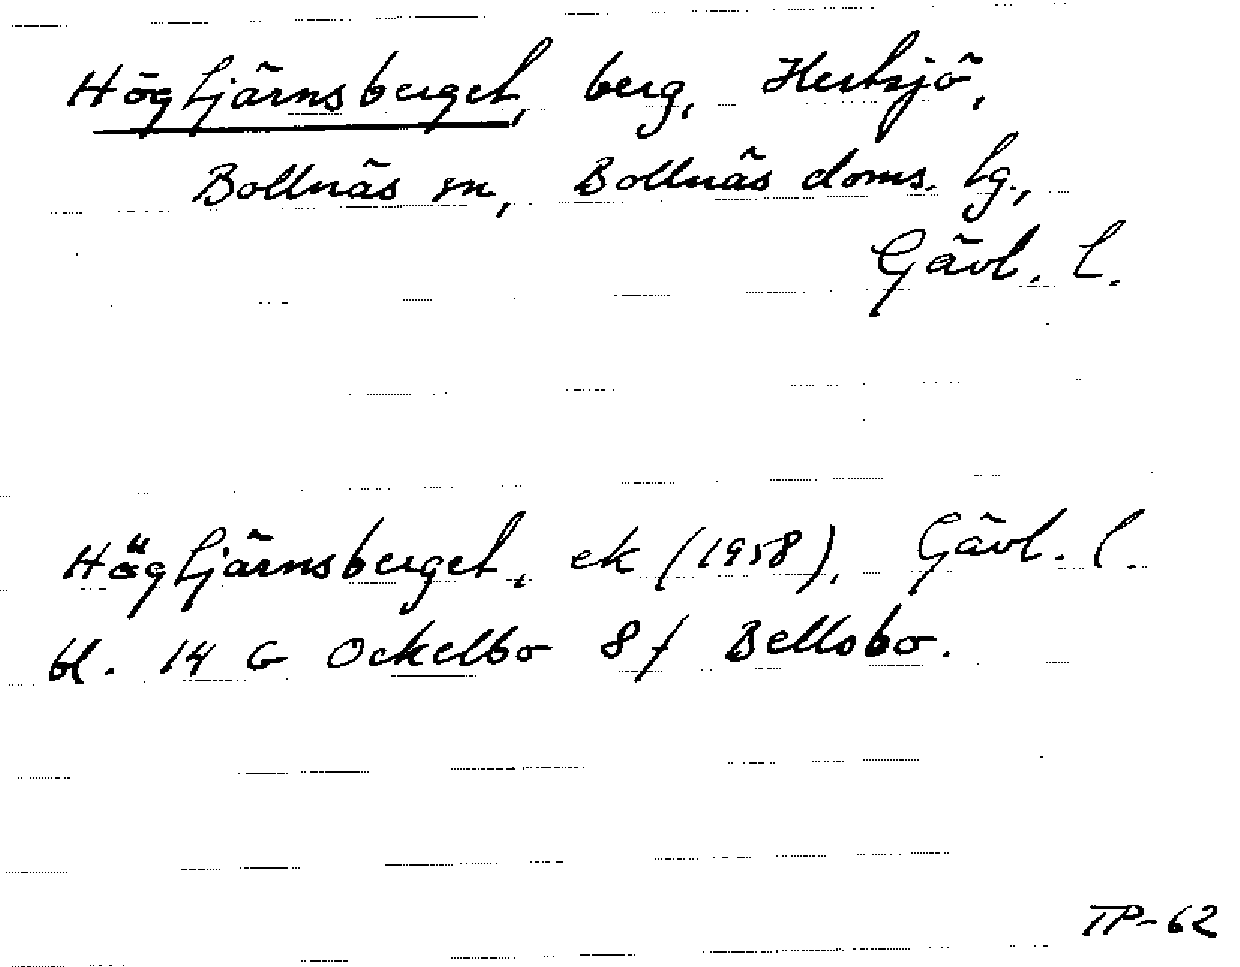 Högtjärnsberget, berg, Hertsjö,
Bollnäs sn, Bollnäs doms. tg.,
Gävl. l.
Högtjärnsberget, ek (1958), Gävl. l.
bl. 14 G Ockelbo 8 f Bellsbo.
TP-62